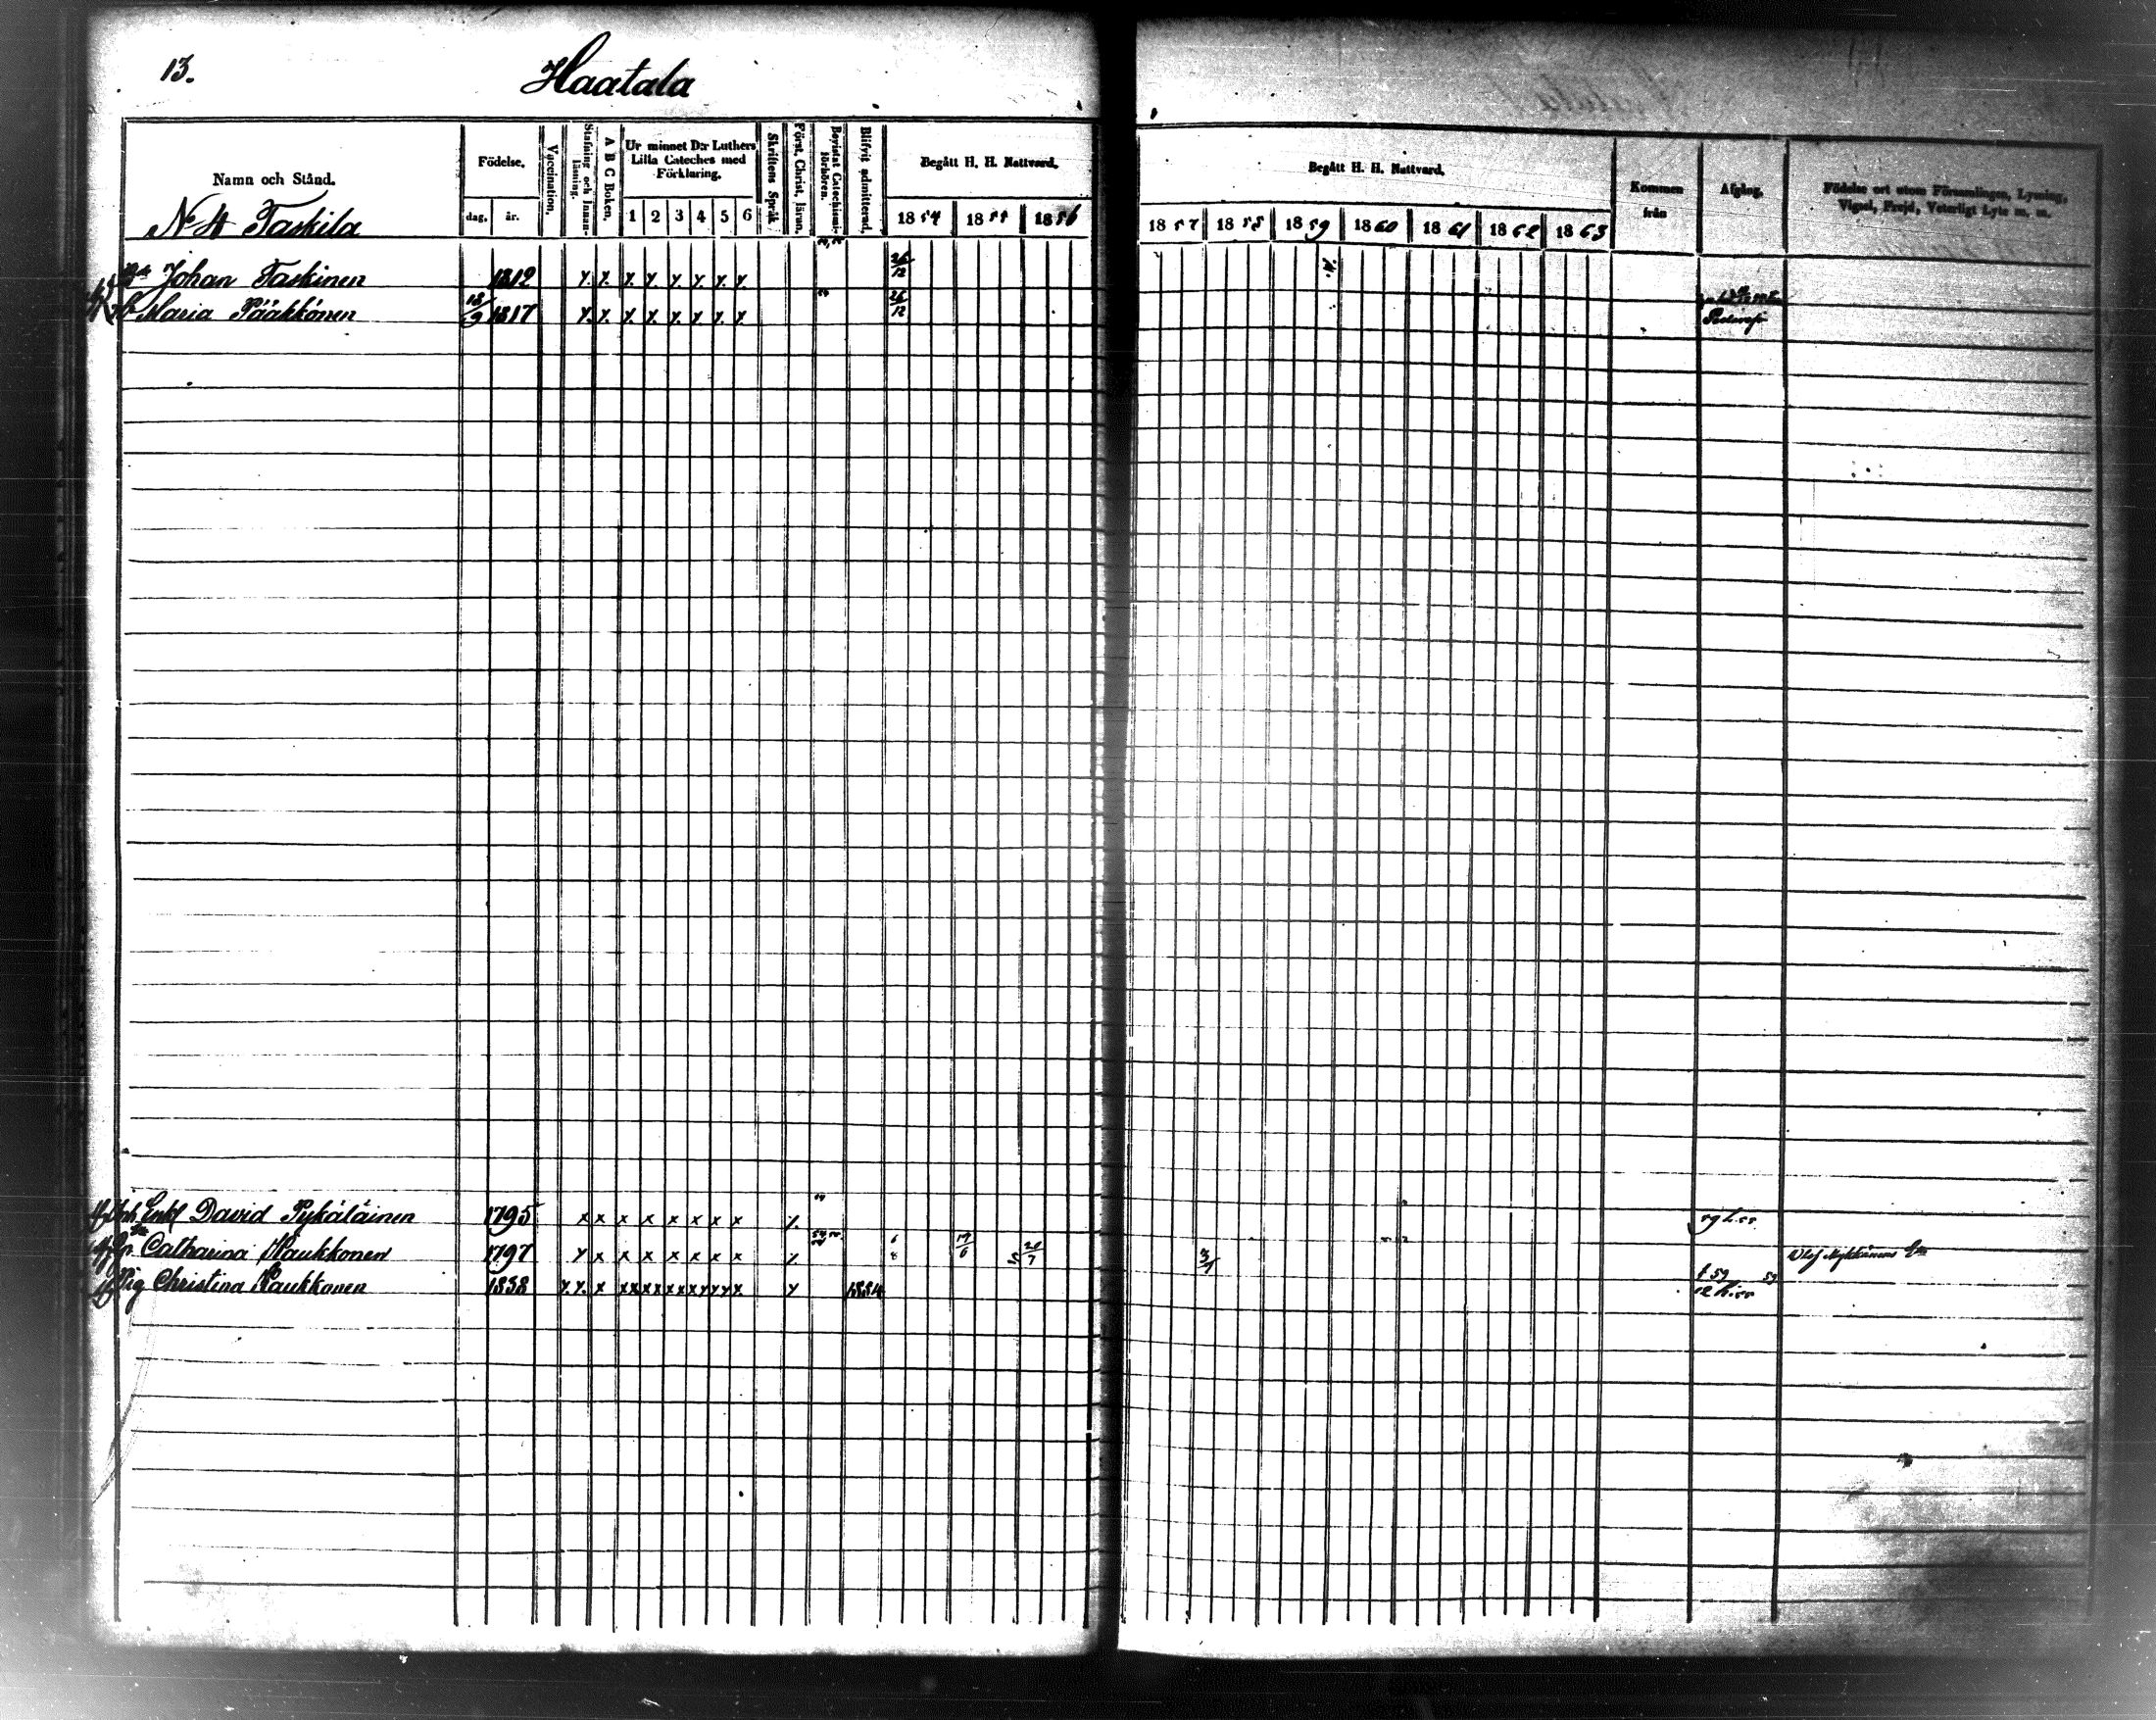 13.
Haatala
Namn och Stånd.
Födelse.
dag.
år.
Vaccination.
Stafning och Innan-läsning.
A B C Boken.
Ur minnet D:r Luthers Lilla Cateches med Förklaring.
1 2 3 4 5 6
Skriftens Språk
Först. Christ. läran.
Bevistat Catechismi-förhören.
Blifvit admitterad.
Begått H. H. Nattvard.
1854 1855 1856
Begått H. H. Nattvard.
1857 1858 1859 1860 1861 1862 1863
Kommen från
Afgång.
Födelse ort utom Församlingen, Lysning, Vigsel, Frejd, Veterligt Lyte m. m.
No 4 Taskila
Johan Taskinen 1812 x. x. x. x. x. x. x. x. 26/12
Maria Pääkkönen 18/9 1817 x. x. x. x. x. x. x. x. 26/12
Enkl David Pykäläinen 1795 x x x x x x x x x.
Catharina Haukkonen 1797 x x x x x x x x x 6 8 19/6 20/7
Pig Christina Haukkonen 1838 x. x. x x x x x x x x x x x x x x 1854